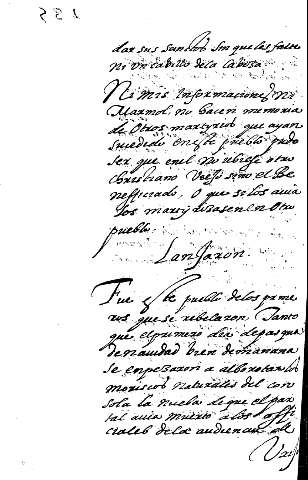 135
dar sus sanctos sin que les falte
ni un cabillo de la cabeza.
Ni mis informaciones, Ni
Marmol, no hacen memoria
de otros martyrios que ayan
sucedido en este pueblo pudo
ser que en el no ubiese otro
christiano Viejo sino el Be
nefficiado, O que se los avia
los martyrizasen en Otro
pueblo.
Lanjaron.
Fue este pueblo de los prime
ros que se rebelaron. Tanto
que el primero dia de pasqua
de navidad bien de mañana
se enpezaron a alborotar los
moriscos naturales del con
sola la nueba de que el par
tal avia muerto a los offi
ciales de la audiencia de